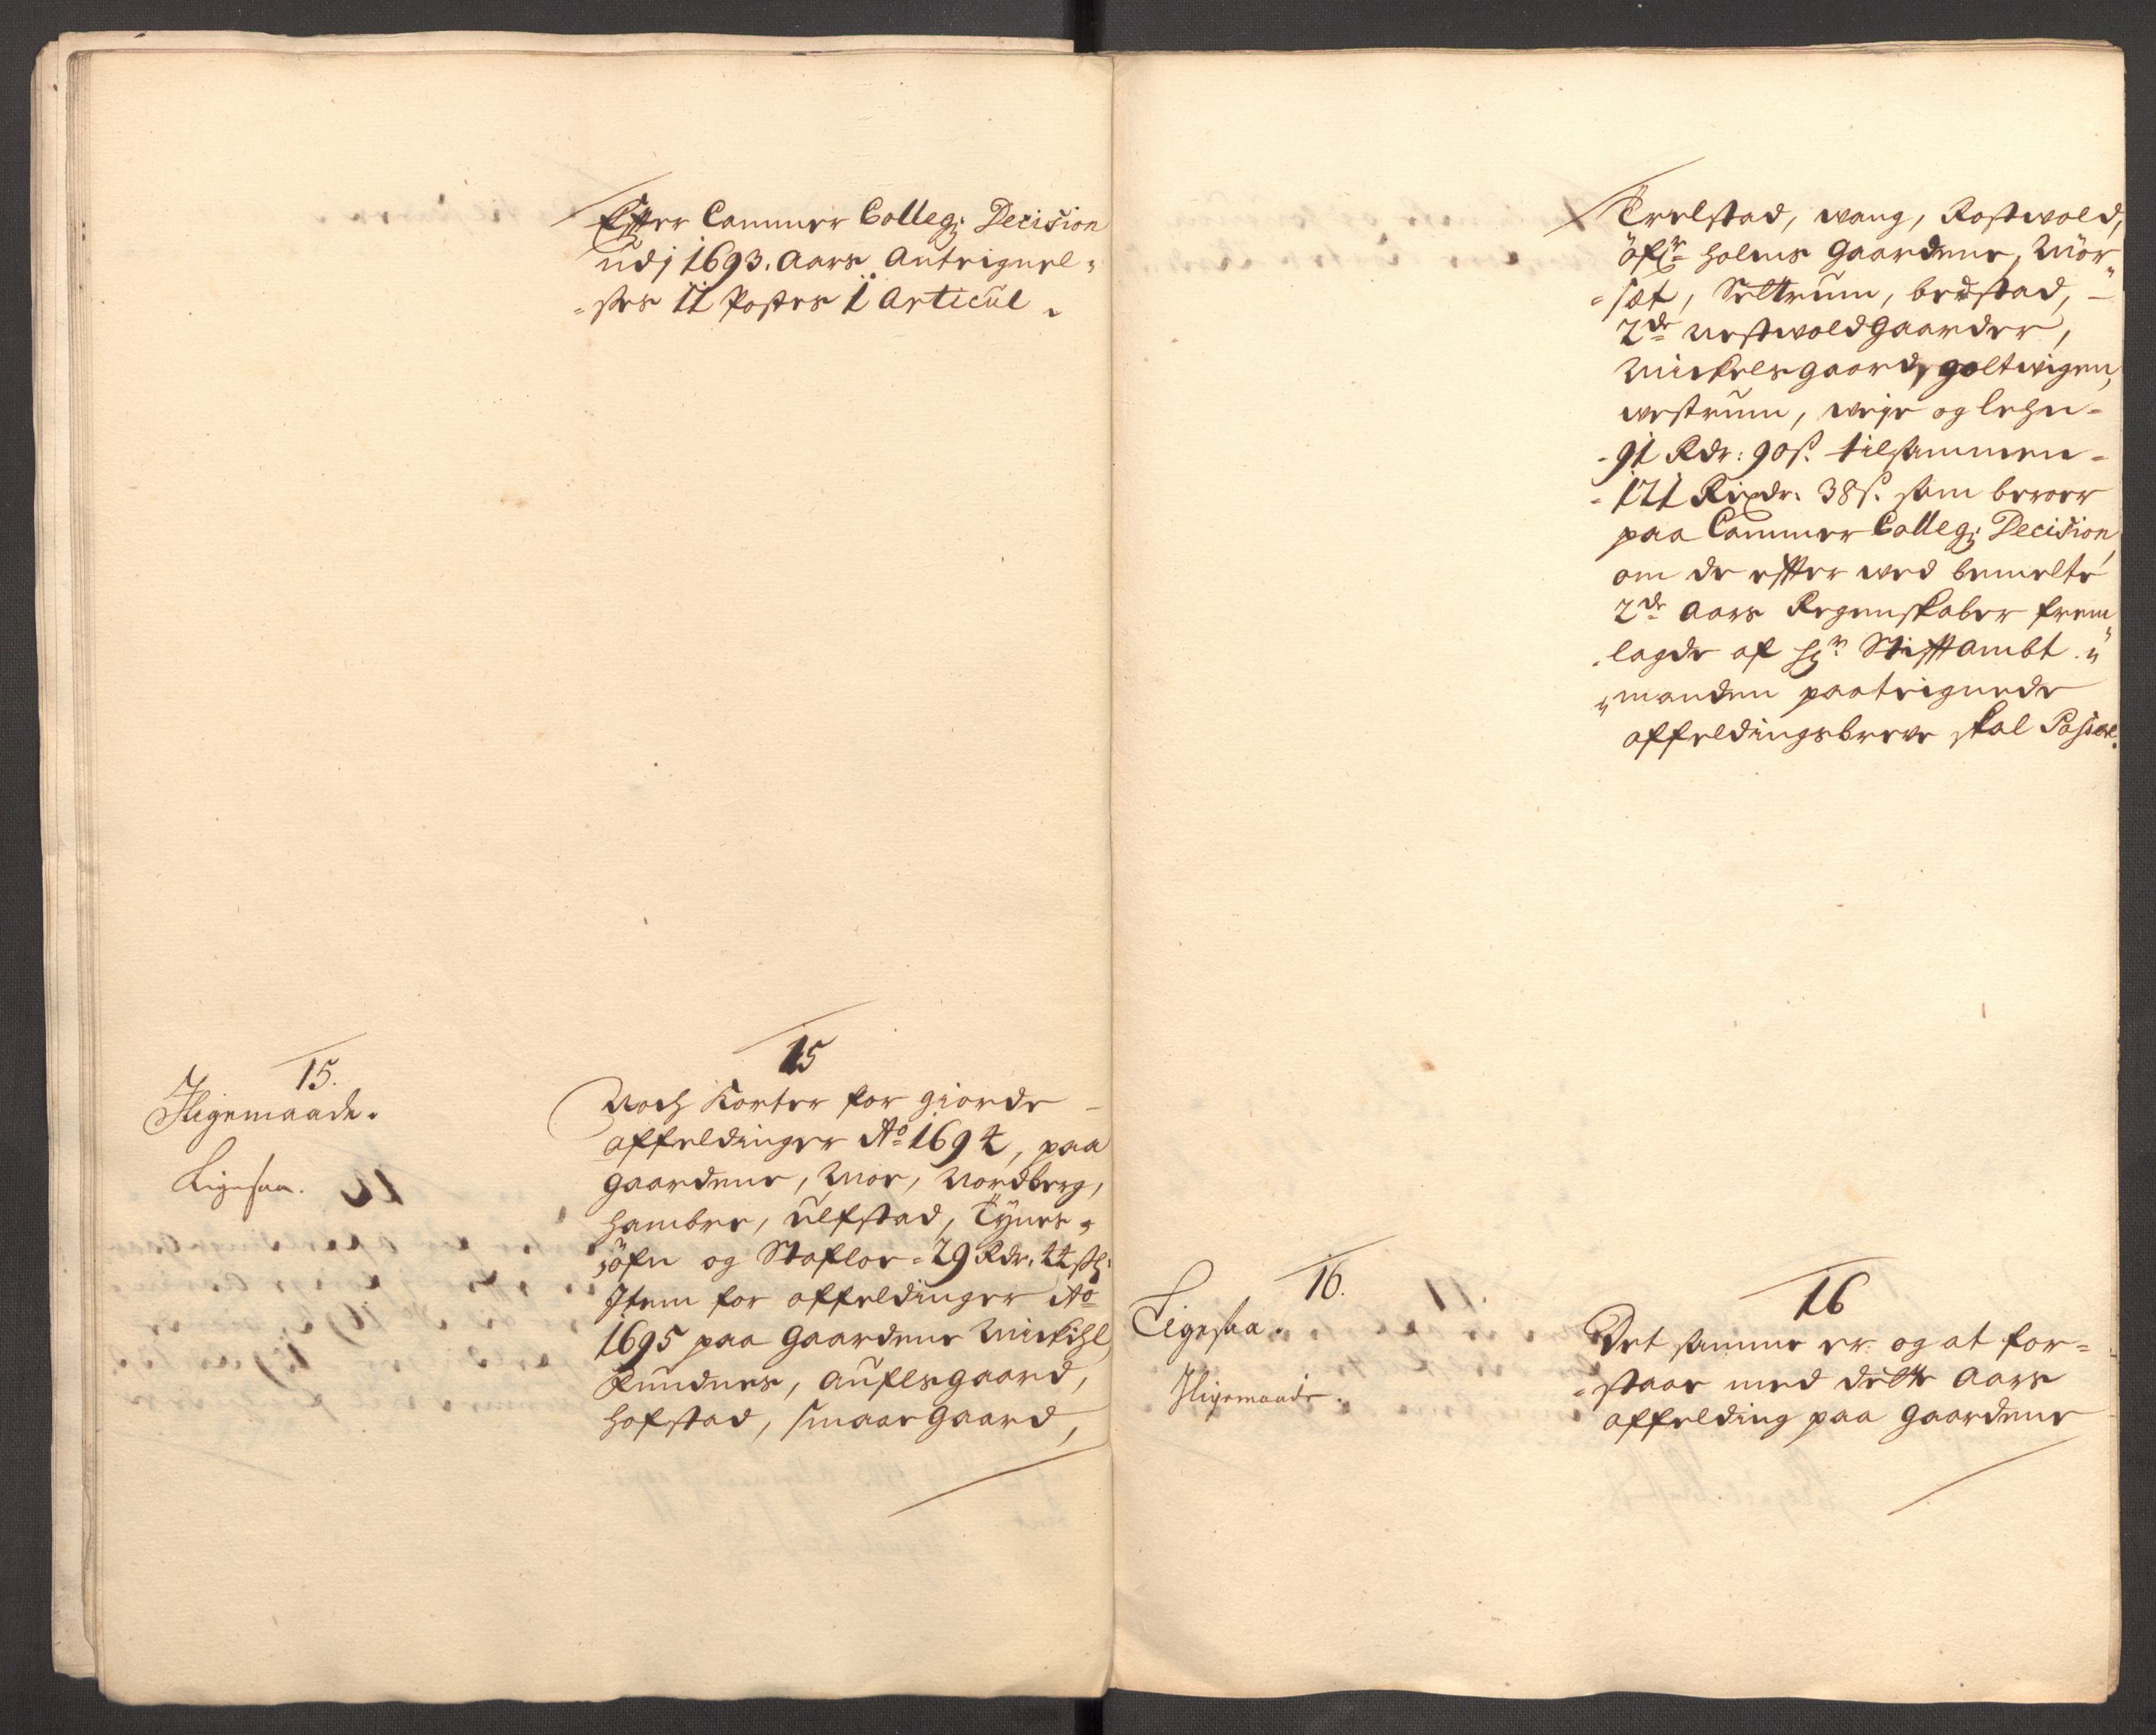 Effter Cammer Collegij Decision
udj 1693. Aars Anteignel-
-ses 11 Postes 1 Articul.
15.
Iligemaade.
Ligesaa.
15
Noch Korter for giorde
affeldinger Ao 1694, paa
gaardene, Moe, Nordberg,
hambre, Ulfstad, Tynes-
öfn og Stoflor - 29 Rdr: 44 sk:
Item for affeldinger Ao
1695 paa Gaardene Mickihl
Rundnes, Auflsgaard,
hofstad, smaargaard,
Trelstad, wang, Rostwold,
öfre holms Gaardene, Mör
-set, Seltrum, bedstad,
2de Nestwoldgaarder,
Mickelsgaard, goltwigen,
westrum, weye og lehn-
-91 Rdr: 90 s. tilsammen-
-121 Rixdr: 38 s. som beroer
paa Cammer Collegij Decision,
om de effter wed bemelte
2de Aars Regenskaber frem
lagde af Hr Stifftambt
manden paateignede
affeldingsbreve skal Passere.
16.
Ligesaa.
Iligemaade.
16
Det samme er og at for-
-staae med dette Aars
affelding paa gaardene